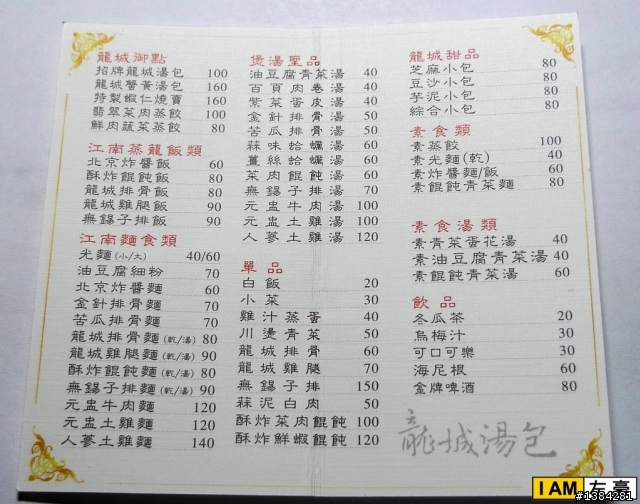 龍城御點
招牌龍城湯包 100
龍城蟹黃湯包 160
特製蝦仁燒賣 160
翡翠菜肉蒸餃 100
鮮肉蔬菜蒸餃 80
江南蒸籠飯類
北京炸醬飯 60
酥炸餛飩飯 80
龍城排骨飯 80
龍城雞腿飯 90
無錫子排飯 90
江南麵食類
光麵(小/大) 40/60
油豆腐細粉 70
北京炸醬麵 60
金針排骨麵 70
苦瓜排骨麵 70
龍城排骨麵(乾/湯) 80
龍城雞腿麵(乾/湯) 90
酥炸餛飩麵(乾/湯) 80
無錫子排麵(乾/湯) 90
元盅牛肉麵 120
元盅土雞麵 120
人蔘土雞麵 140
煲湯聖品
油豆腐青菜湯 40
百頁肉卷湯 40
紫菜蛋皮湯 40
金針排骨湯 50
苦瓜排骨湯 50
蒜味蛤蠣湯 60
薑絲蛤蠣湯 60
菜肉餛飩湯 60
無錫子排湯 70
元盅牛肉湯 100
元盅土雞湯 100
人蔘土雞湯 120
單品
白飯 20
小菜 30
雞汁蒸蛋 40
川燙青菜 50
龍城排骨 60
龍城雞腿 70
無錫子排 150
蒜泥白肉 50
酥炸菜肉餛飩 100
酥炸鮮蝦餛飩 120
龍城甜品
芝麻小包 80
豆沙小包 80
芋泥小包 80
綜合小包 80
素食類
素蒸餃 100
素光麵(乾) 40
素炸醬麵/飯 60
素餛飩青菜麵 80
素食湯類
素青菜蛋花湯 40
素油豆腐青菜湯 40
素餛飩青菜湯 60
飲品
冬瓜茶 20
烏梅汁 30
可口可樂 30
海尼根 60
金牌啤酒 80
龍城湯包
I AM 左豪
#1384281